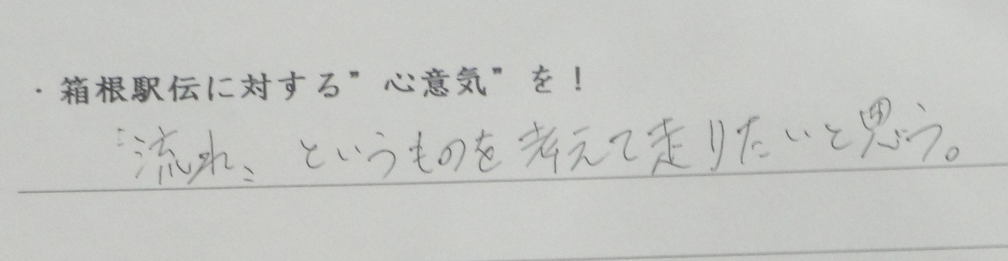 ・箱根駅伝に対する”心意気”を！
〝流れ〟というものを考えて走りたいと思う。